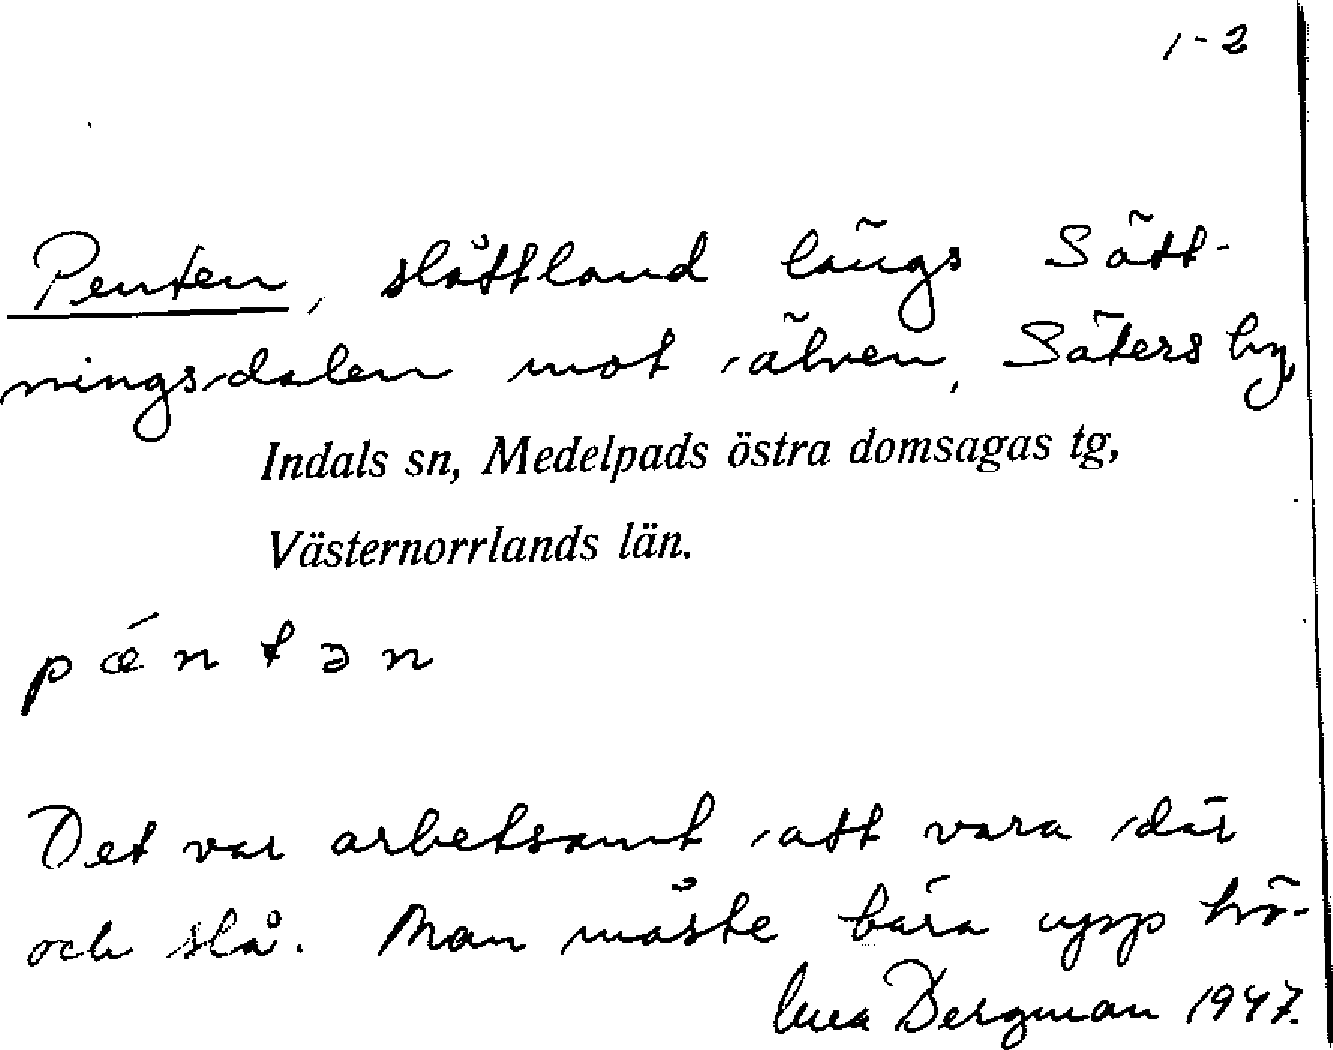 1-2
Penten, slåttland längs Sätt-
ningsdalen mot älven, Säters by,
Indals sn, Medelpads östra domsagas tg,
Västernorrlands län.
pǽntən
Det var arbetsamt att vara där
och slå. Man måste bära upp hö-
Bergman 1947.